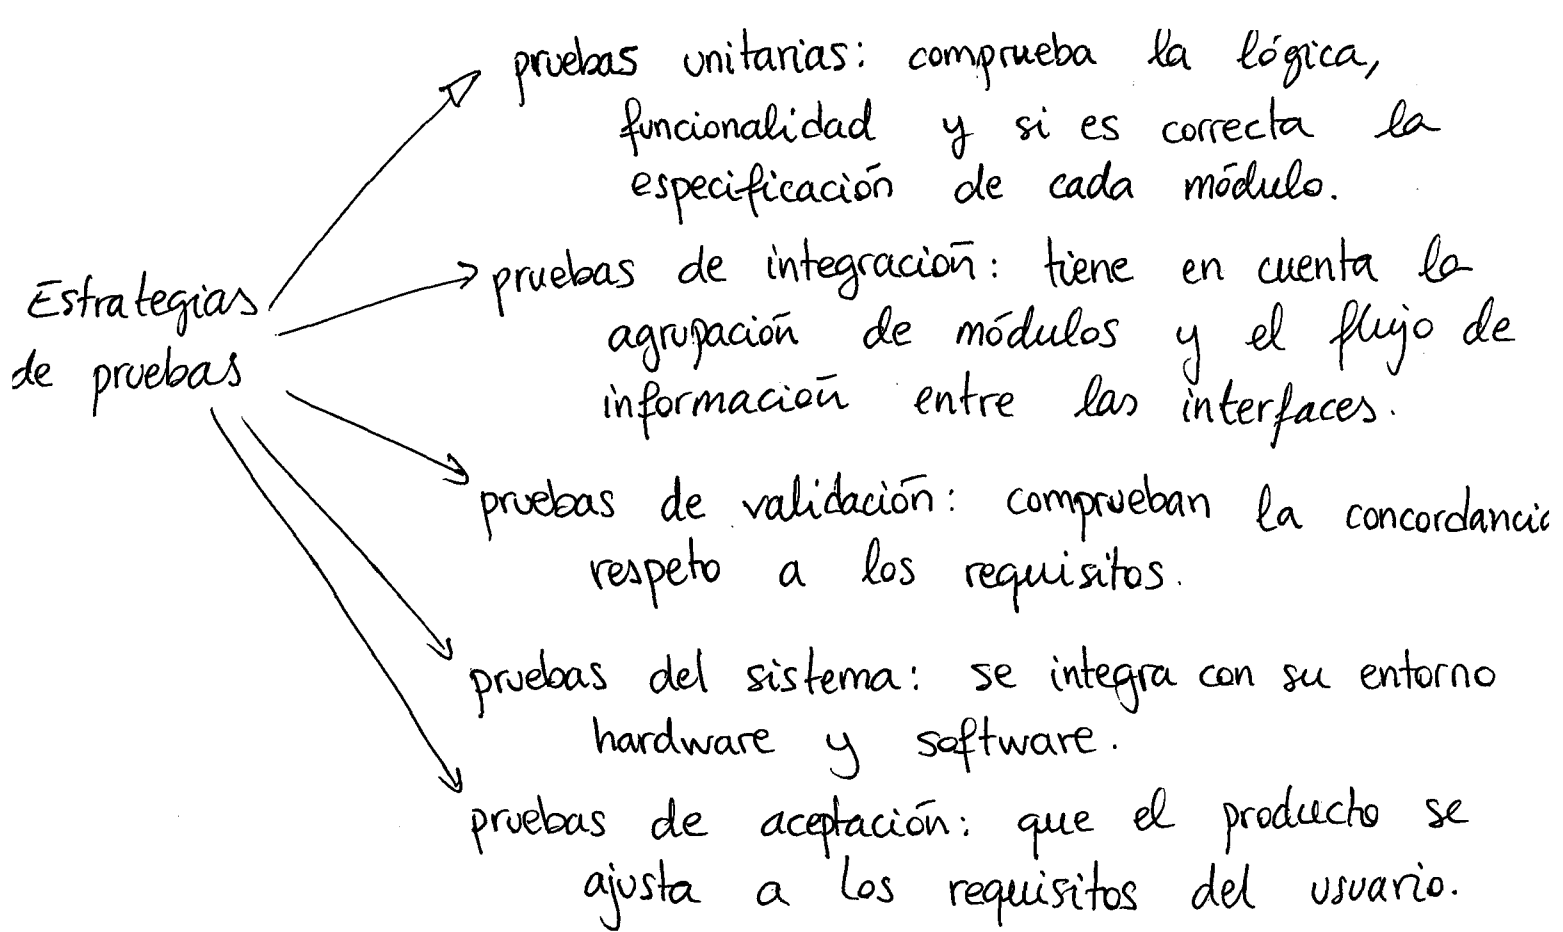 Estrategias
de pruebas
pruebas unitarias: comprueba la lógica,
funcionalidad y si es correcta la
especificación de cada módulo.
pruebas de integración: tiene en cuenta la
agrupación de módulos y el flujo de
información entre las interfaces.
pruebas de validación: comprueban la concordancia
respeto a los requisitos.
pruebas del sistema: se integra con su entorno
hardware y software.
pruebas de aceptación: que el producto se
ajusta a los requisitos del usuario.